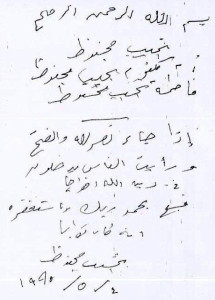 بسم الله الرحمن الرحيم
نجيب محفوظ
أم كلثوم نجيب محفوظ
فاطمة نجيب محفوظ
إذا جاء نصر الله والفتح
ورأيت الناس يدخلون
في دين الله أفواجا
فسبح بحمد ربك واستغفره
إنه كان توابا
نجيب محفوظ